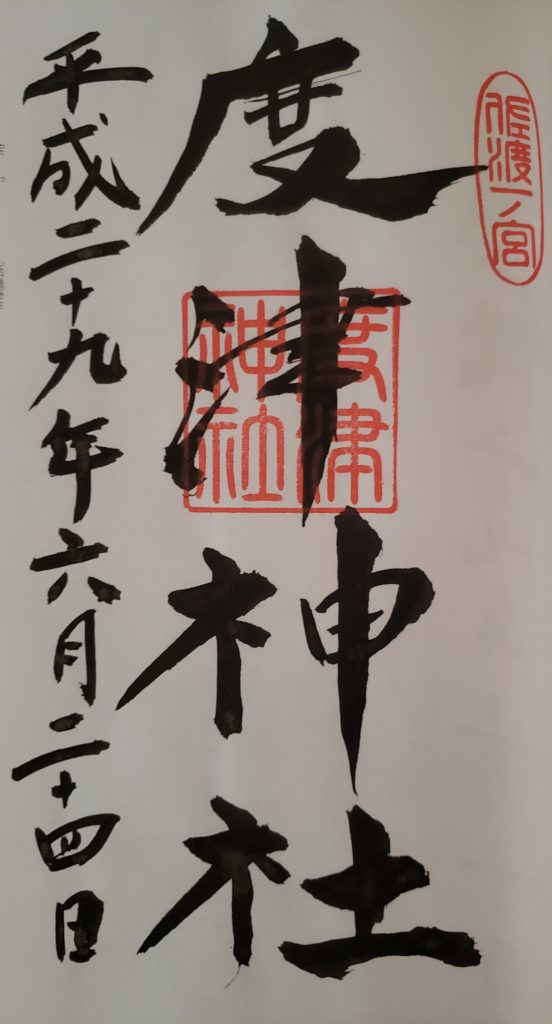 佐渡一ノ宮
度津神社
度津
神社
平成二十九年六月二十四日